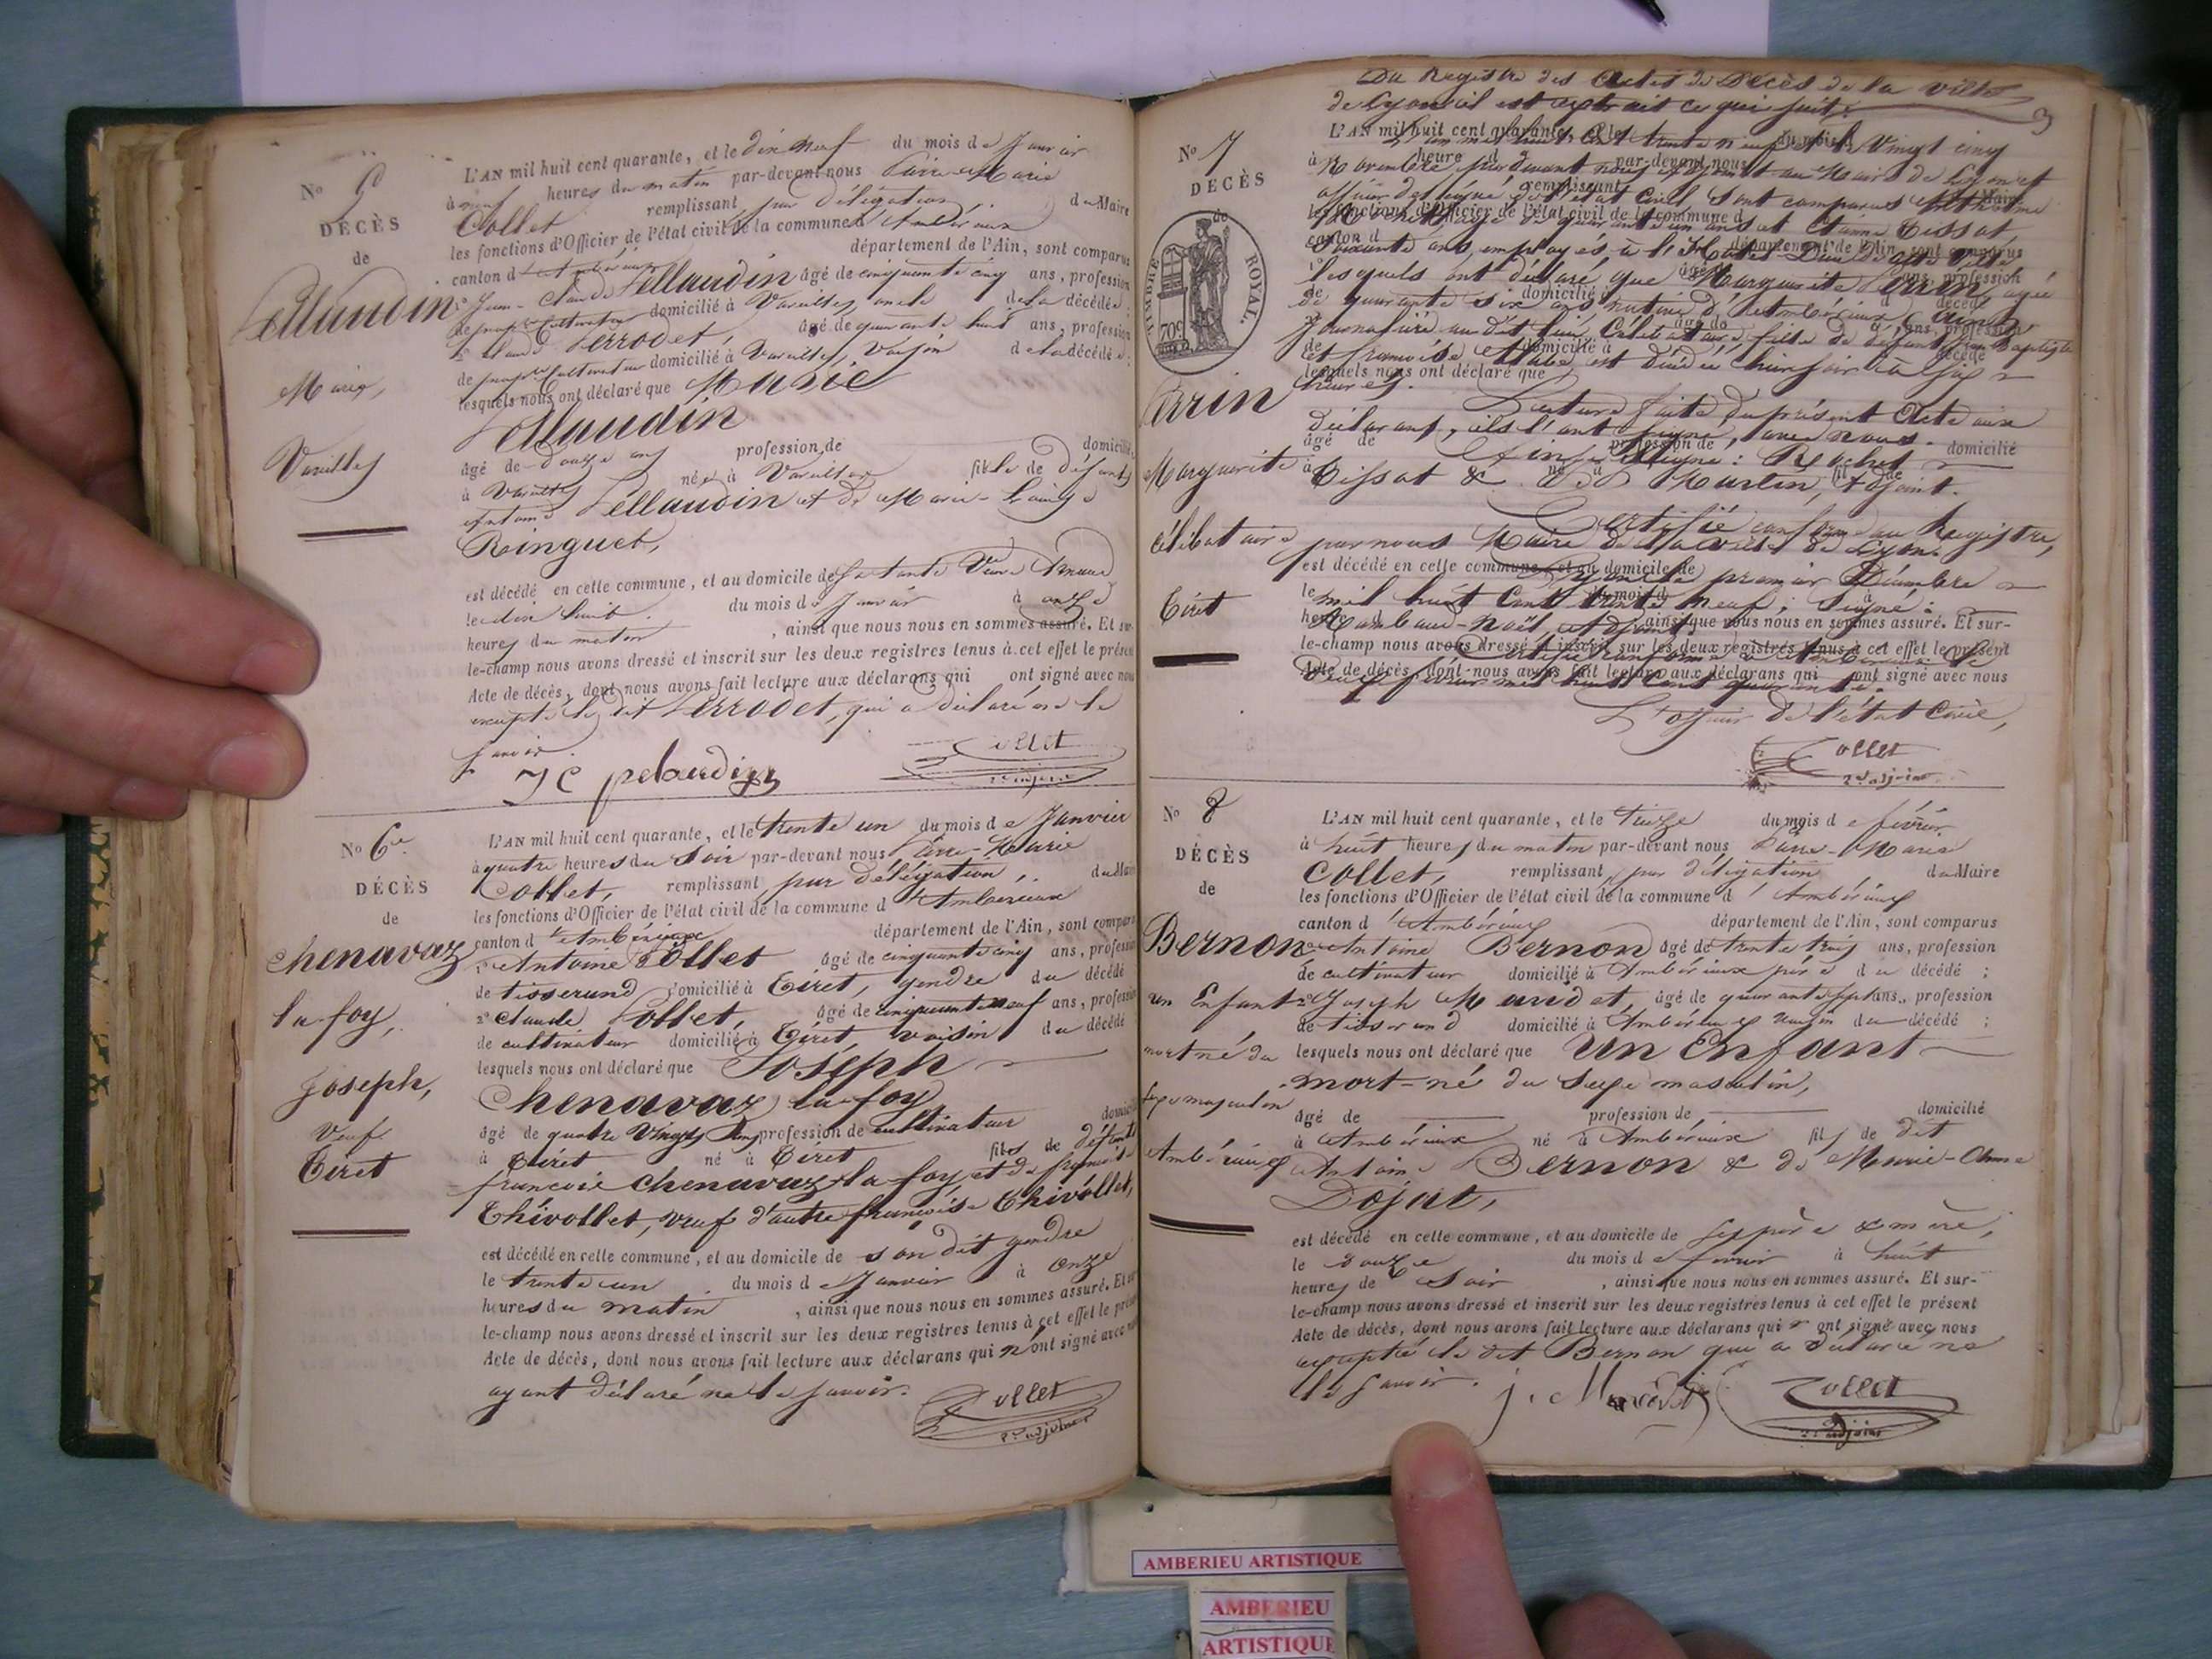 No 5
DÉCÈS
de
Pellaudin
Marie,
Vareilles
L'AN mil huit cent quarante, et le dix neuf du mois de Janvier
à neuf heures du matin par-devant nous Pierre-Marie
Collet remplissant par délégation du Maire
les fonctions d'Officier de l'état civil de la commune d'Ambérieux
canton d'Ambérieux département de l'Ain, sont comparus
1º Jean-Claude Pellaudin âgé de cinquante cinq ans, profession
de cultivateur domicilié à Vareilles, oncle de la décédée;
2º Claude Perrodet, âgé de quarante huit ans, profession
de cultivateur domicilié à Vareilles, voisin de la décédée;
lesquels nous ont déclaré que Marie
Pellaudin
âgé de douze ans profession de domicilié
à Vareilles née à Vareilles fille de défunts
Antoine Pellaudin et de Marie-Louise
Ringuet,
est décédé en cette commune, et au domicile de sa tante Veuve
le dix huit du mois de Janvier à onze
heures du matin, ainsi que nous nous en sommes assuré. Et sur-
le-champ nous avons dressé et inscrit sur les deux registres tenus à cet effet le présent
Acte de décès, dont nous avons fait lecture aux déclarans qui ont signé avec nous
excepté le dit Perrodet, qui a déclaré ne le
savoir.
J C pelaudin Collet
2e adjoint
No 6e
DÉCÈS
de
Chenavaz
la foy,
Joseph,
Veuf
Tiret
L'AN mil huit cent quarante, et le trente un du mois de Janvier
à quatre heures du soir par-devant nous Pierre-Marie
Collet, remplissant par délégation, du Maire
les fonctions d'Officier de l'état civil de la commune d'Ambérieux
canton d'Ambérieux département de l'Ain, sont comparus
1º Antoine Collet âgé de cinquante cinq ans, profession
de tisserand domicilié à Tiret, gendre du décédé
2º Claude Collet, âgé de cinquante neuf ans, profession
de cultivateur domicilié à Tiret, voisin du décédé
lesquels nous ont déclaré que Joseph
Chenavaz la foy
âgé de quatre vingts ans profession de cultivateur domicilié
à Tiret né à Tiret fils de défunts
françois Chenavaz la foy, et de françoise
Thivollet, veuf d'autre françoise Thivollet,
est décédé en cette commune, et au domicile de son dit gendre
le trente un du mois de Janvier à onze
heures du matin, ainsi que nous nous en sommes assuré. Et sur-
le-champ nous avons dressé et inscrit sur les deux registres tenus à cet effet le présent
Acte de décès, dont nous avons fait lecture aux déclarans qui n'ont signé avec nous
ayant déclaré ne le savoir.
Collet
2e adjoint
3
No 7
DÉCÈS
de
TIMBRE ROYAL.
70c
Perrin
Marguerite
Célibataire
Tiret
Du Registre des Actes de Décès de la ville
de Lyon il est extrait ce qui suit:
L'an mil huit cent trente neuf et le Vingt cinq
Novembre, pardevant nous adjoint au Maire de Lyon et
officier délégué de l'état Civil, sont comparus Anthelme
Rochet, âgé de quarante un ans et Etienne Tissot,
soixante ans, employés à l'Hôtel Dieu de cette ville
lesquels ont déclaré que Marguerite Perrin, agée
de quarante six ans, native d'Ambérieux (Ain)
Journalière au dit lieu, Célibataire, fille de défunt Jean Baptiste
et françoise est décédée hier soir à six
heures.
Lecture faite du présent Acte aux
déclarans, ils l'ont signé, avec nous.
Ainsi signé: Rochet
Tissot & Martin, Adjoint.
Certifié conforme au Registre,
par nous Maire de la ville de Lyon.
Lyon le premier Décembre
mil huit Cent trente neuf; Signé:
Certifié conforme à Ambérieux le
février mil huit Cent quarante.
L'officier de l'état Civil,
Collet
2e adjoint
No 8
DÉCÈS
de
Bernon
un Enfant
mort né du
sexe masculin
Ambérieux
L'AN mil huit cent quarante, et le treize du mois de février
à huit heures du matin par-devant nous Pierre-Marie
Collet, remplissant par délégation du Maire
les fonctions d'Officier de l'état civil de la commune d'Ambérieux
canton d'Ambérieux département de l'Ain, sont comparus
1º Antoine Bernon âgé de trente trois ans, profession
de cultivateur domicilié à Ambérieux père du décédé;
2º Joseph Mandet, âgé de quarante sept ans, profession
de tisserand domicilié à Ambérieux voisin du décédé;
lesquels nous ont déclaré que un Enfant
mort-né du sexe masculin,
âgé de profession de domicilié
à Ambérieux né à Ambérieux fils de dit
Antoine Bernon & de Marie-Anne
Dojat,
est décédé en cette commune, et au domicile de ses père & mère,
le douze du mois de février à huit
heures de soir, ainsi que nous nous en sommes assuré. Et sur-
le-champ nous avons dressé et inscrit sur les deux registres tenus à cet effet le présent
Acte de décès, dont nous avons fait lecture aux déclarans qui ont signé avec nous
excepté le dit Bernon qui a déclaré ne
le savoir.
Collet
2e adjoint
AMBERIEU ARTISTIQUE
AMBERIEU
ARTISTIQUE